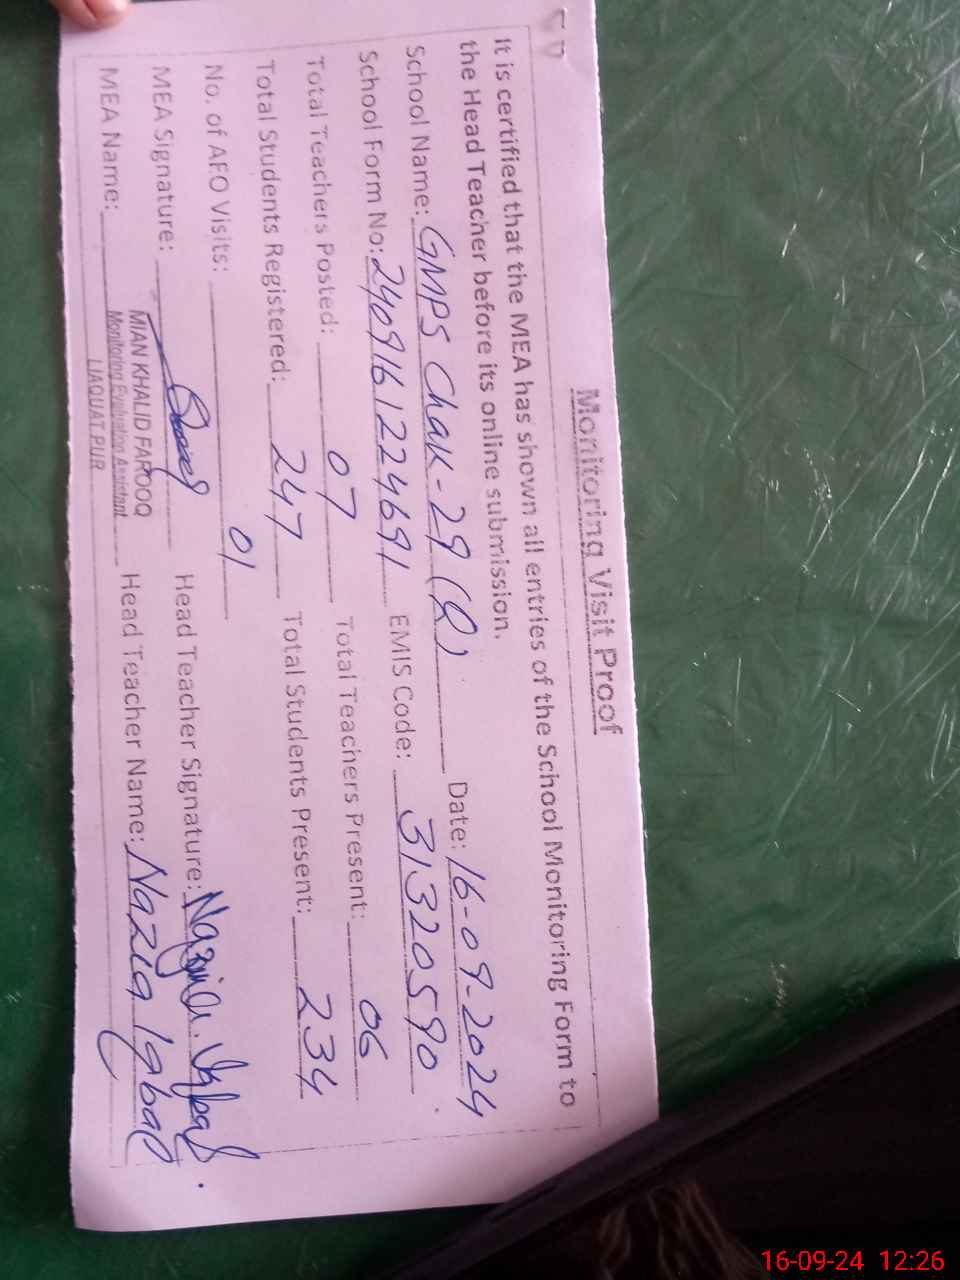 Monitoring Visit Proof
It is certified that the MEA has shown all entries of the School Monitoring Form to
the Head Teacher before its online submission.
School Name: GMPS Chak-29 (Q) Date: 16-09-2024
School Form No: 2409161224691 EMIS Code: 31320590
Total Teachers Posted: 07 Total Teachers Present: 06
Total Students Registered: 247 Total Students Present: 234
No. of AEO Visits: 01
MEA Signature: Head Teacher Signature: Nazia Iqbal
MEA Name: MIAN KHALID FAROOQ Head Teacher Name: Nazia Iqbal
Monitoring Evaluation Assistant
LIAQUAT PUR
16-09-24 12:26